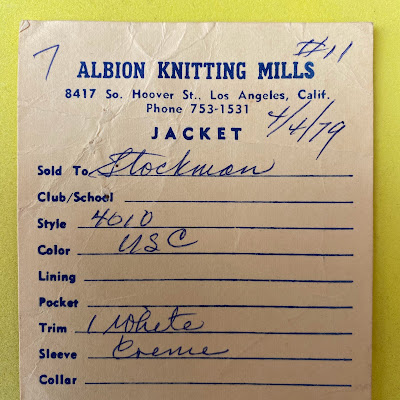 7 #11
ALBION KNITTING MILLS
8417 So. Hoover St., Los Angeles, Calif.
Phone 753-1531
4/4/79
JACKET
Sold To Stockman
Club/School
Style 4010
Color USC
Lining
Pocket
Trim 1 White
Sleeve Creme
Collar